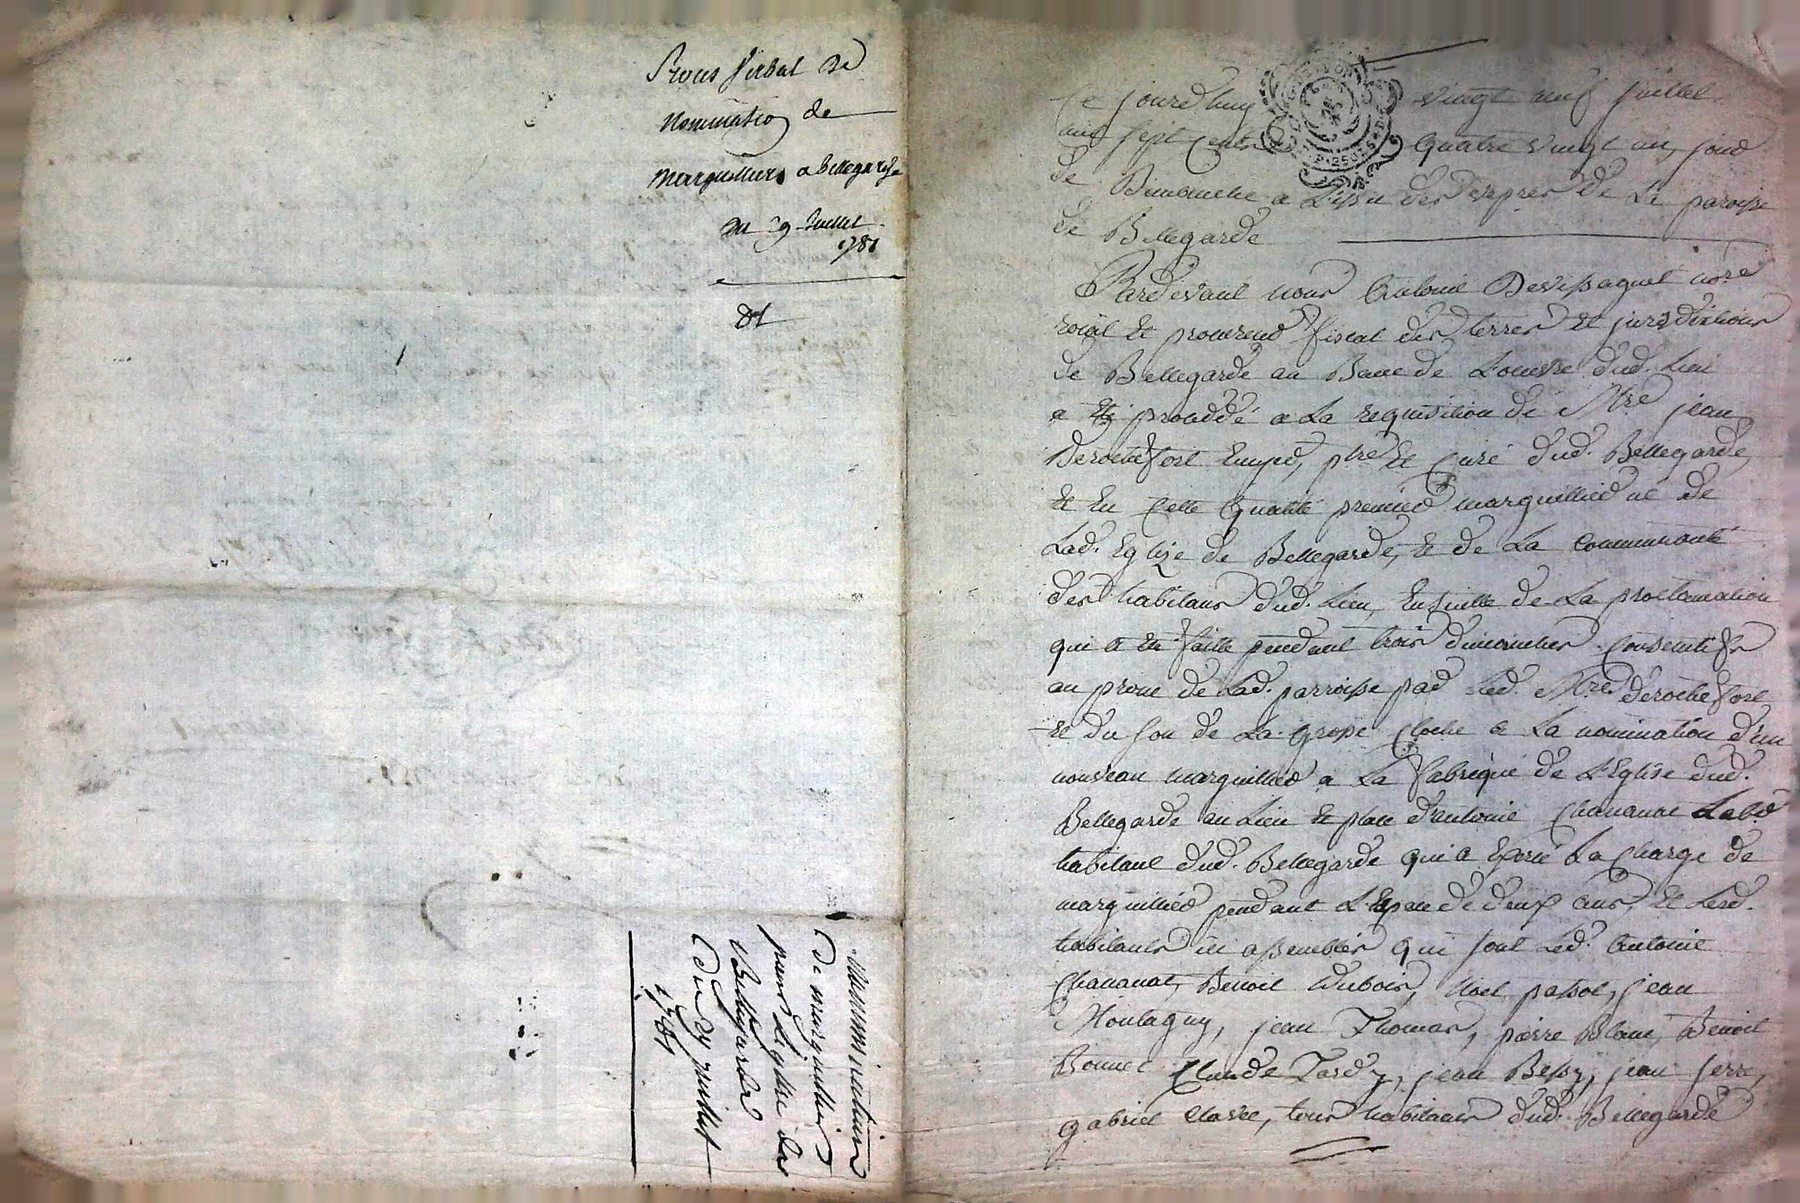 Proces Verbal de
Nomination de
Marguilliers a Bellegarde
du 29 Juillet
1781
Nomminnation
de marguillier
pour Léglise de
Bellegarde
du 29 juillet
1781
Ce jourd'huy vingt neuf juillet
mil sept cents quatre vingt un, jour
de Dimanche a L'issue des vespres de La paroisse
de Bellegarde
Pardevant nous Antoine Devissaguet no.re
roial Et procureur fiscal des terres Et jurisdictions
de Bellegarde au Banc de L'oeuvre dud. Lieu
a Eté procédé a La requisition de Mre jean
Derochefort ptre Et Curé dud. Bellegarde,
Et En Cette Qualité premier marguillier né de
Lad. Eglize de Bellegarde, Et de La Communauté
des habitans dud. Lieu, Ensuitte de La proclamation
qui a Eté faitte pendant trois dimanches Consecutifs
au prone de Lad. parroisse par Led. Mre Derochefort
Et du son de La grosse Cloche a La nomination d'un
nouveau marguillier a La fabrique de L'Eglise dud.
Bellegarde au Lieu Et place d'antoine Chavanat Labr
habitant dud. Bellegarde qui a Exercé La Charge de
marguillier pendant L'Espace de deux ans, Et Lesd.
habitants ici assemblés qui sont Led. Antoine
Chavanat, Benoit Dubois, Noel passot, jean
Montagny, jean Thomas, pierre Blanc, Benoit
Bonnet Claude Tardy, jean Bessy, jean ferre,
gabriel Clavel, tous habitans dud. Bellegarde